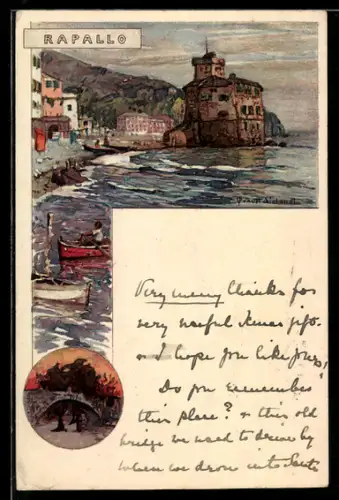 RAPALLO
Very many thanks for
very useful Xmas gift.
& I hope you like yours,
Do you remember
this place? & this old
bridge we used to drive by
when we drove into